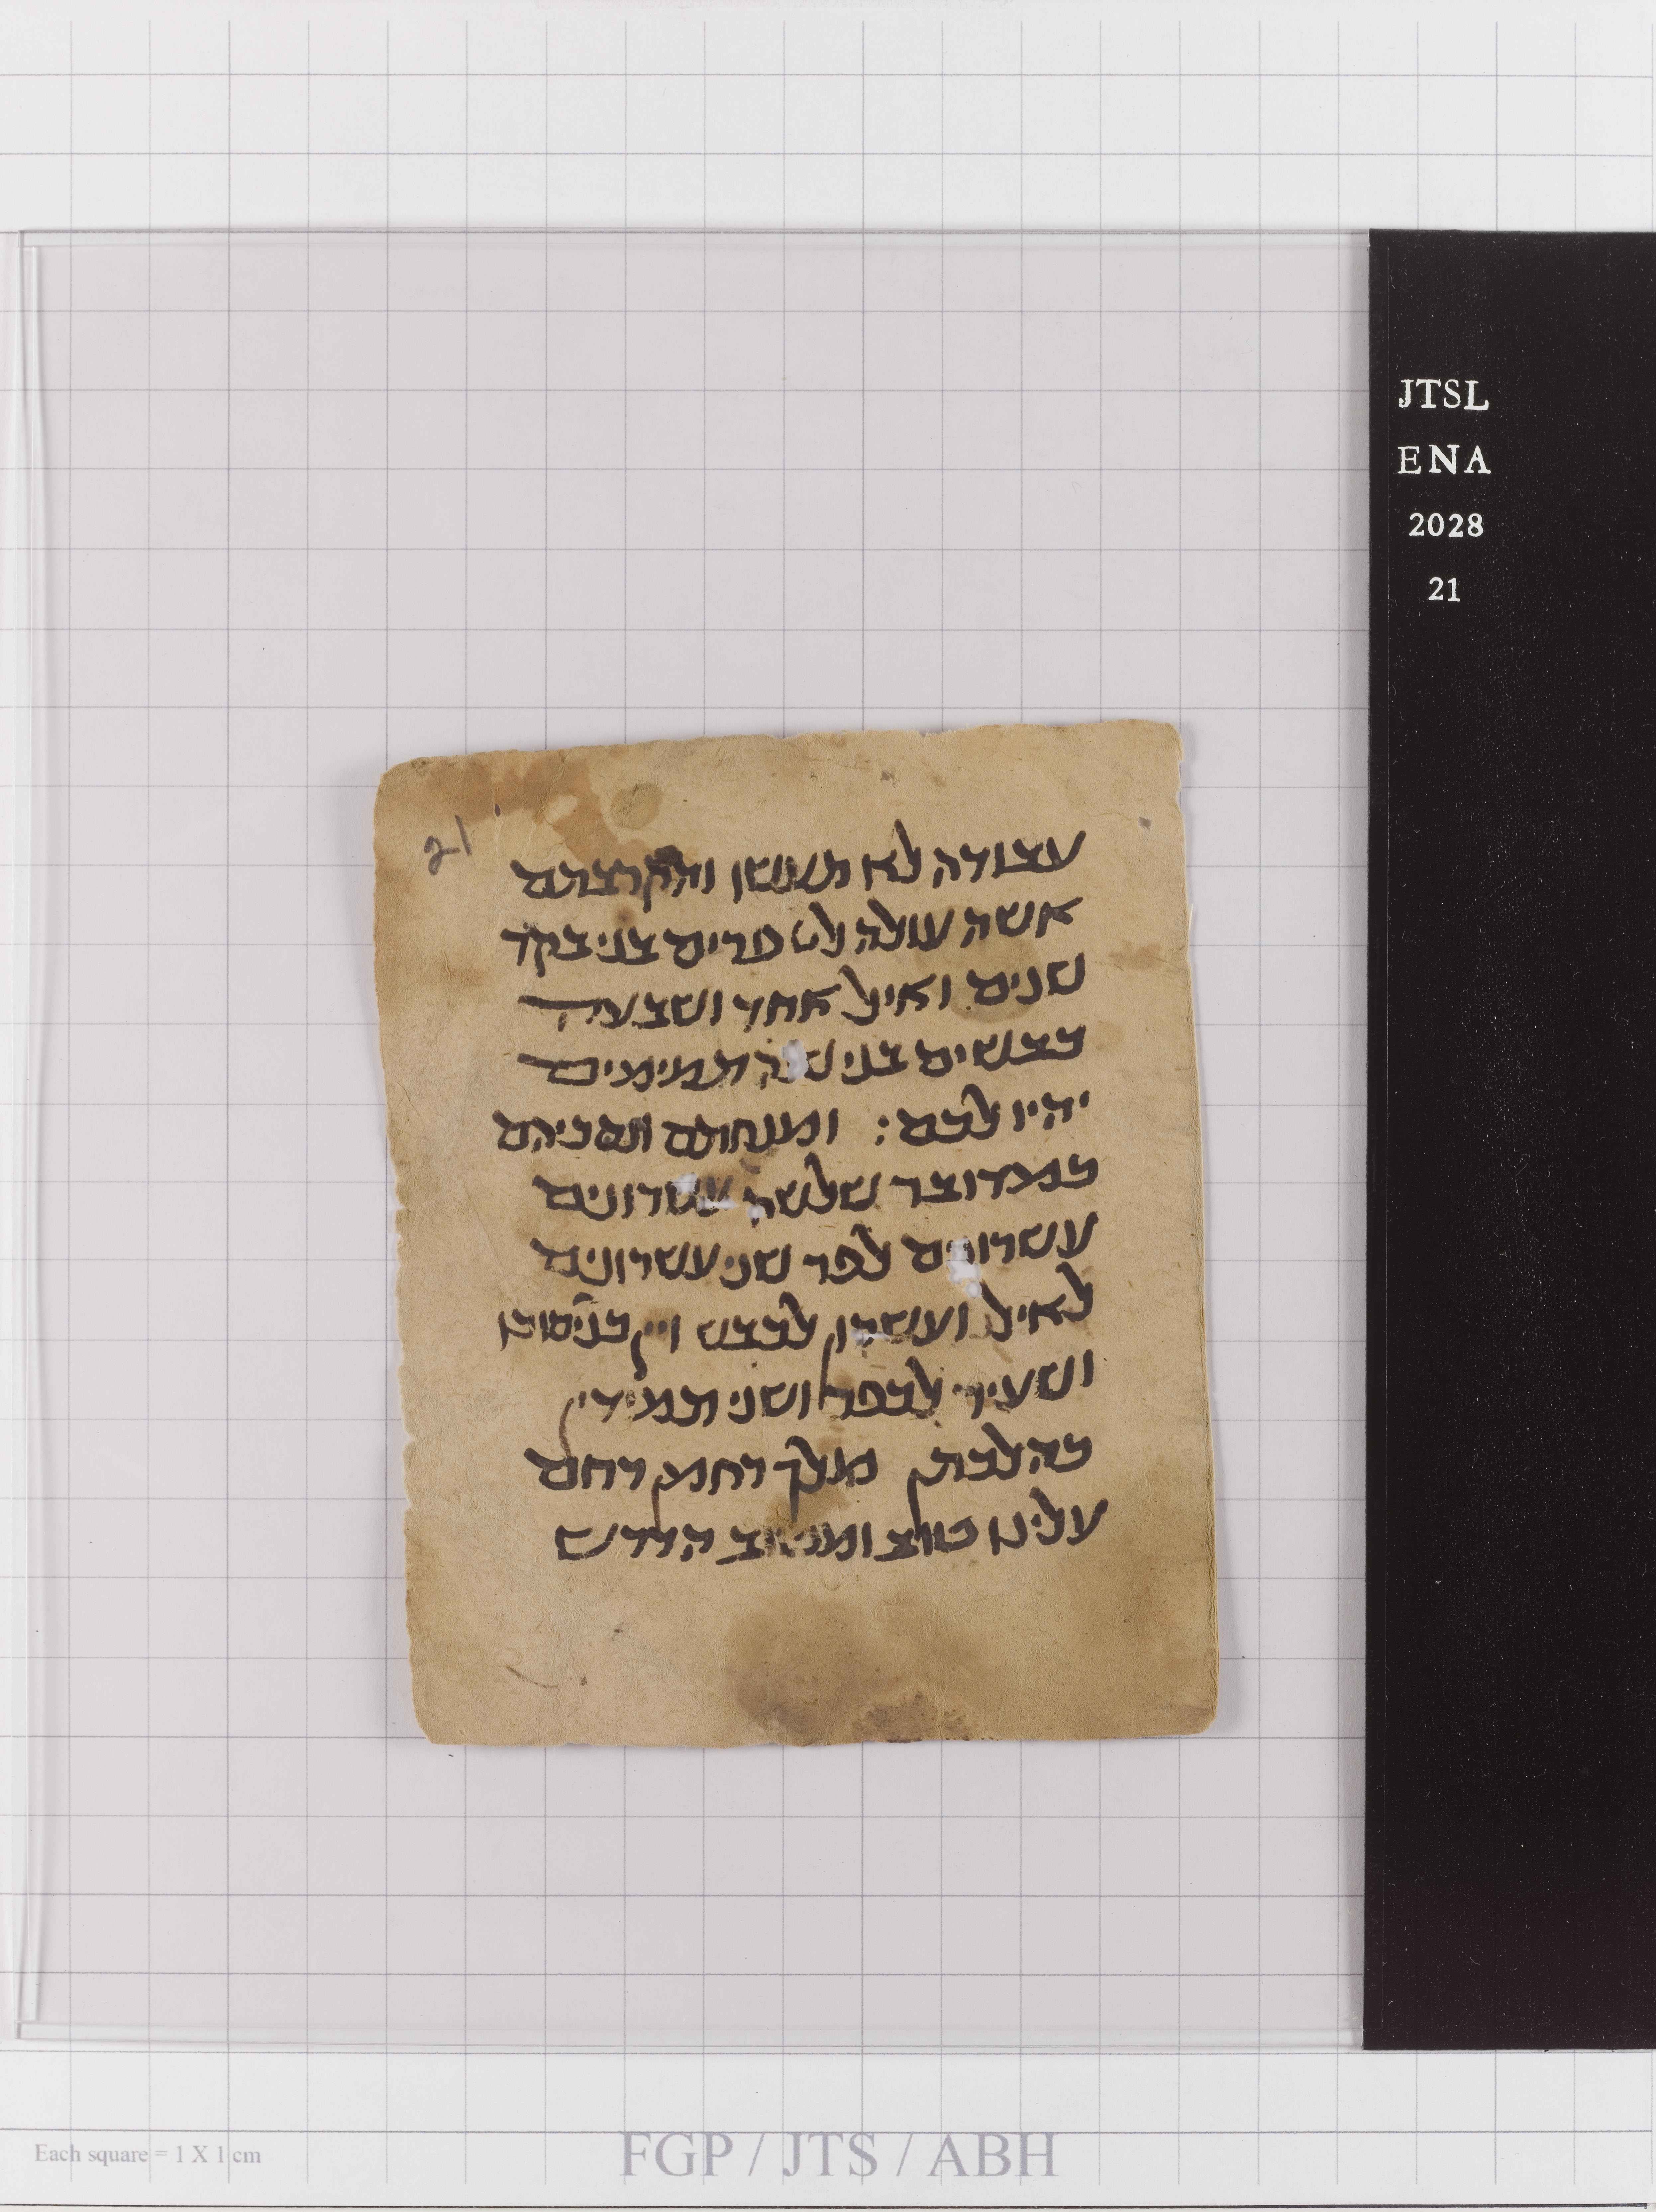 JTSL
ENA
2028
21
21
עבודה לא תעשו והקרבתם
אשה עולה ליי פרים בני בקר
שנים ואיל אחד ושבעה
כבשים בני שנה תמימים
יהיו לכם : ומנחתם ונסכיהם
כמדובר שלשה עשרונים
עשרונים לפר שני עשרונים
לאיל ועשרון לכבש ויין כניסוכו
ושעיר לכפר ושני תמידין
כהלכתן מלך רחמן רחם
עלינו טוב ומטיב הדרש
Each square = 1 X 1 cm
FGP / JTS / ABH